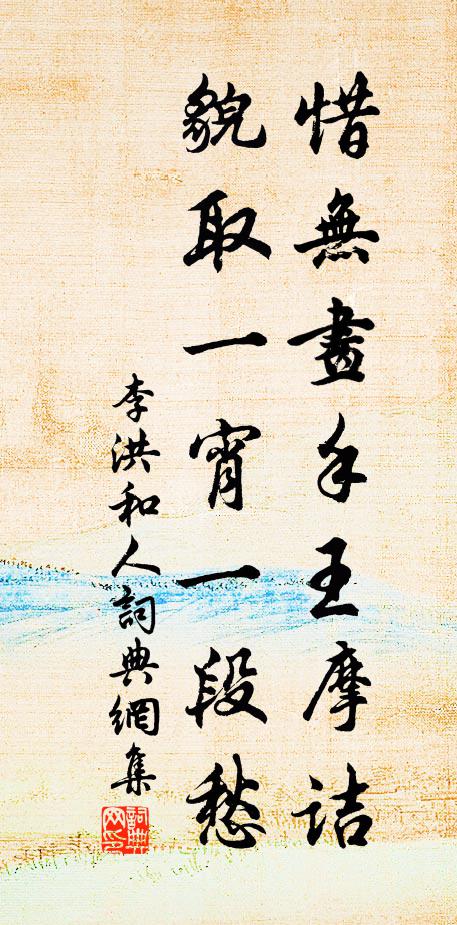 惜無畫手王摩詰
貌取一宵一段愁
李洪和人詞典網集
詞典網印